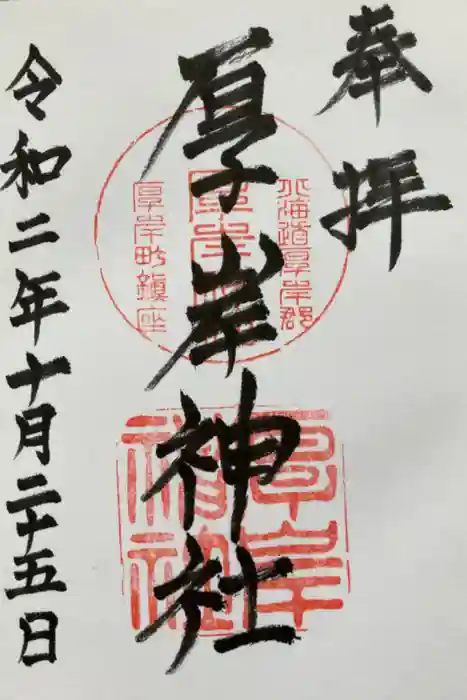 奉拝
北海道厚岸郡
厚岸神社
厚岸町鎮座
厚岸神社
令和二年十月二十五日